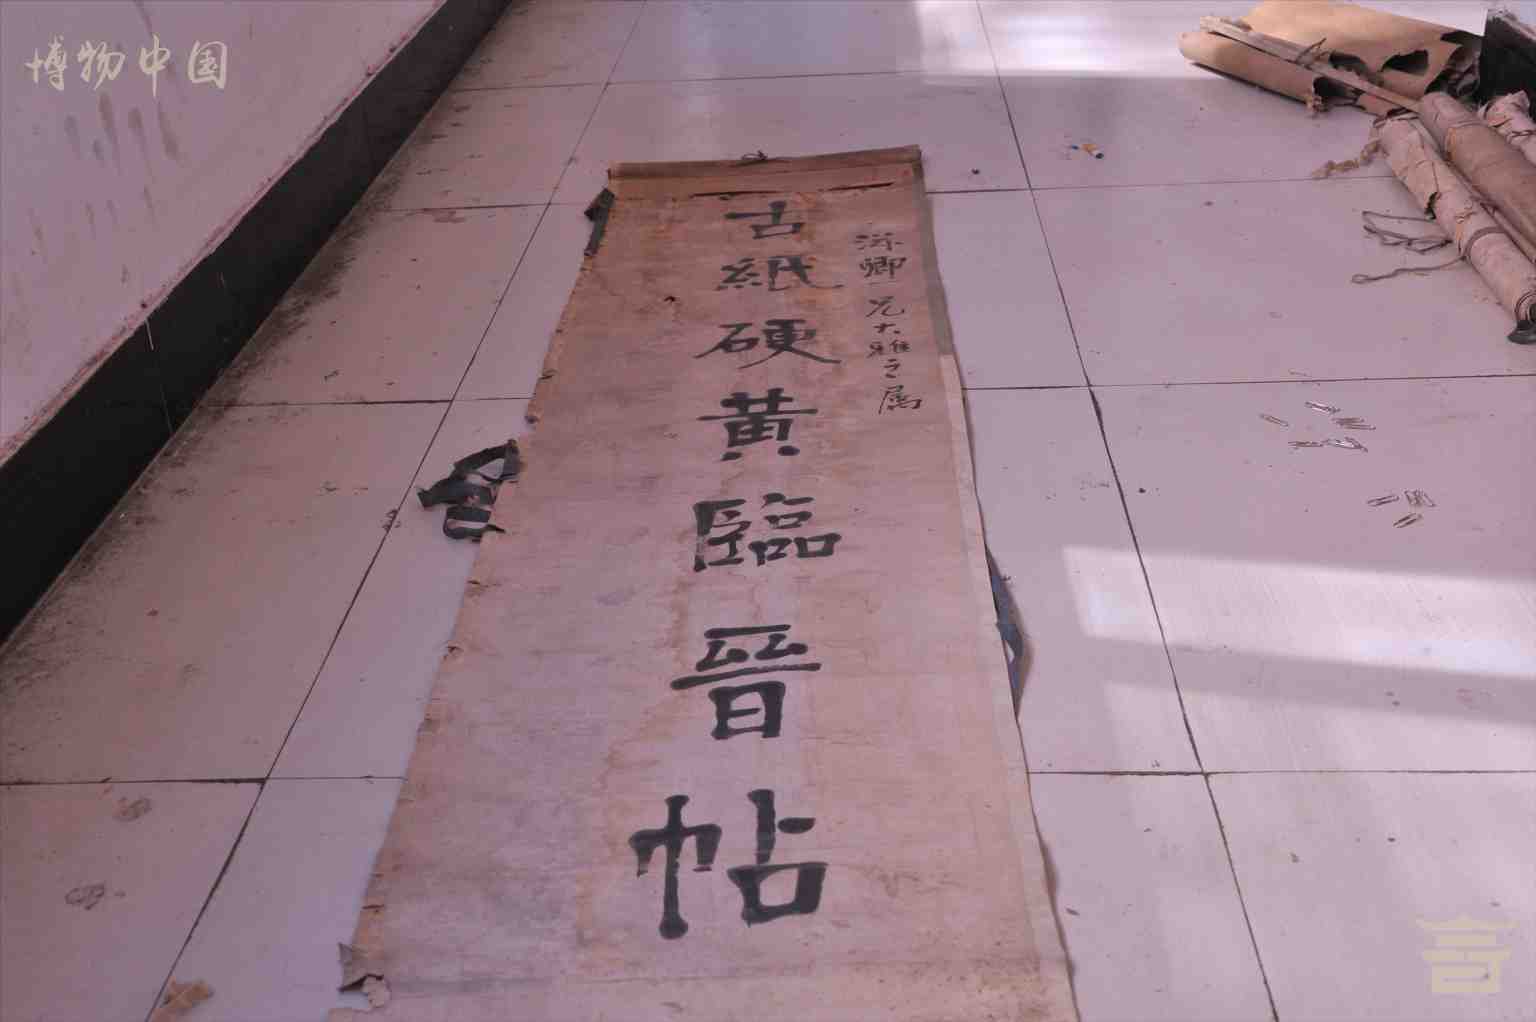 博物中国
古紙硬黃臨晉帖
卿一兄大雅之属